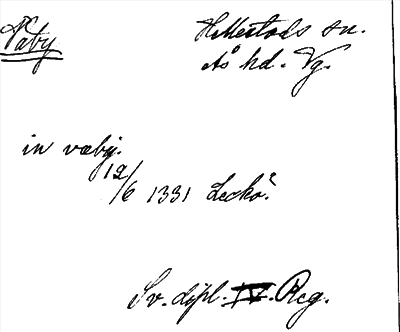 Väby
Hällestads sn.
Ås hd. Vg.
in væby.
12/6 1331 Leckö.
Sv. dipl. IV. Reg.